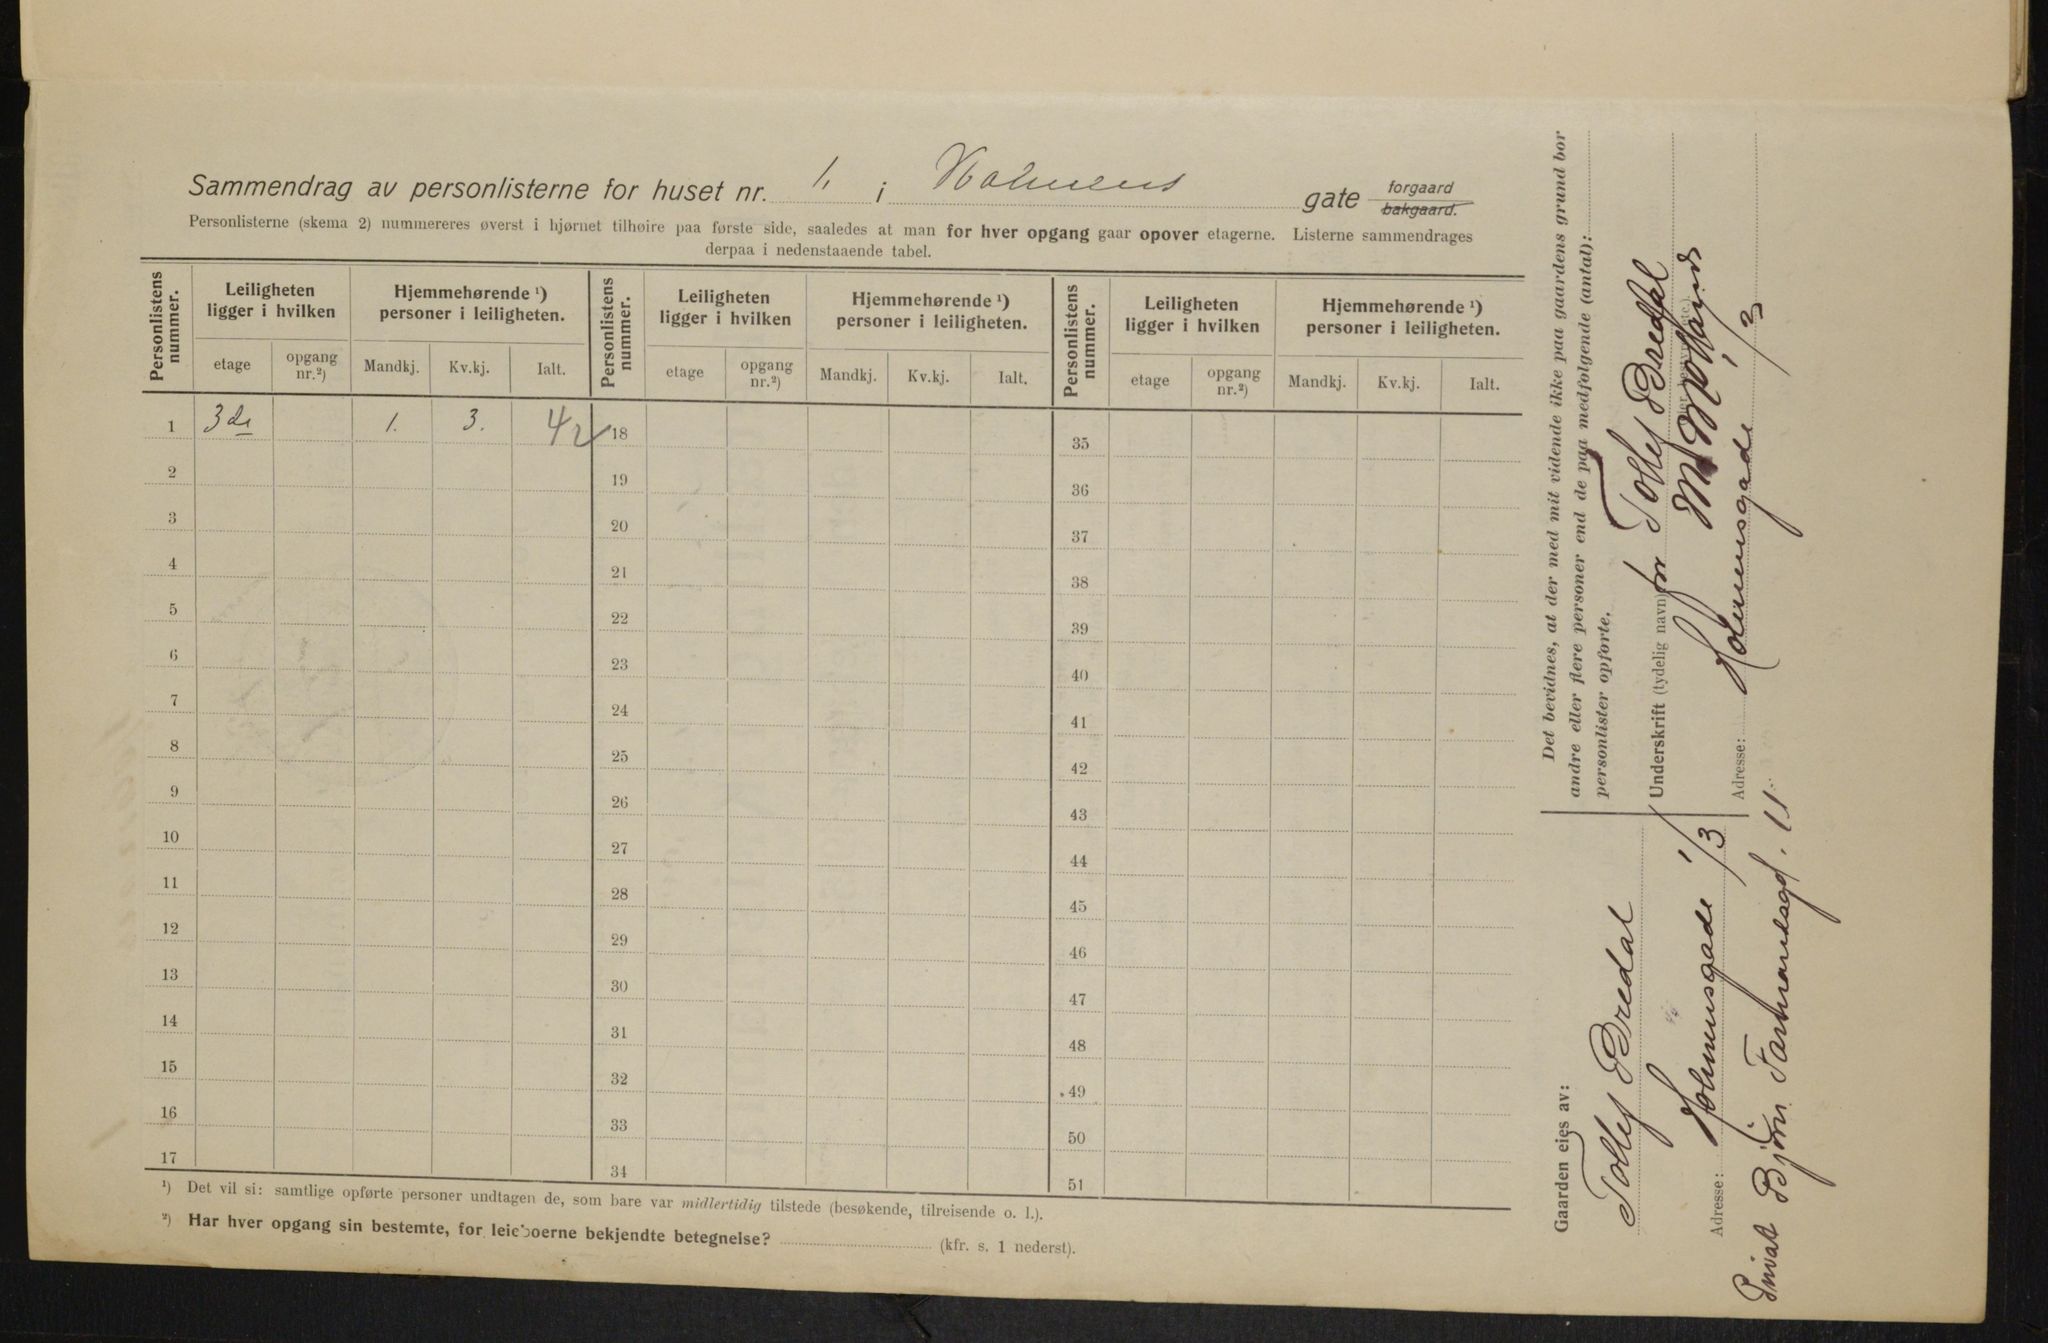 Sammendrag av personlisterne for huset nr. 1. i Holmens gate forgaard bakgaard.
Personlisterne (skema 2) nummereres øverst i hjørnet tilhøire paa første side, saaledes at man for hver opgang gaar opover etagerne. Listerne sammendrages
derpaa i nedenstaaende tabel.
Personlistens nummer. Leiligheten ligger i hvilken Hjemmehørende ¹) personer i leiligheten. Personlistens nummer. Leiligheten ligger i hvilken Hjemmehørende ¹) personer i leiligheten. Personlistens nummer. Leiligheten ligger i hvilken Hjemmehørende ¹) personer i leiligheten.
etage opgang nr.²) Mandkj. Kv.kj. Ialt. etage opgang nr.²) Mandkj. Kv.kj. Ialt. etage opgang nr.²) Mandkj. Kv.kj. Ialt.
1 3de 1. 3. 4 18 35
2 19 36
3 20 37
4 21 38
5 22 39
6 23 40
7 24 41
8 25 42
9 26 43
10 27 44
11 28 45
12 29 46
13 30 47
14 31 48
15 32 49
16 33 50
17 34 51
¹) Det vil si: samtlige opførte personer undtagen de, som bare var midlertidig tilstede (besøkende, tilreisende o. l.).
²) Har hver opgang sin bestemte, for leieboerne bekjendte betegnelse? (kfr. s. 1 nederst).
Det bevidnes, at der med mit vidende ikke paa gaardens grund bor
andre eller flere personer end de paa medfølgende (antal):
personlister opførte.
Underskrift (tydelig navn): for Tollef Bredal
Adresse: Holmensgade 1/3
Gaarden eies av:
Tollef Bredal
Adresse: Holmensgade 1/3
Privat Bjørn Farmandsgd. 11.